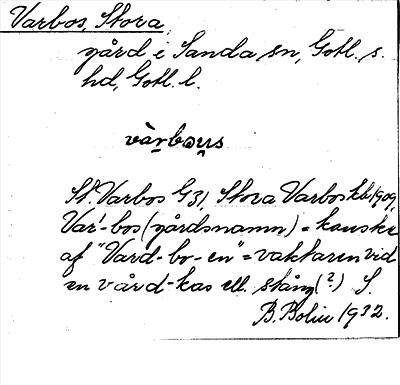 Varbos, Stora
gård i Sanda sn, Gotl. s.
hd, Gotl. l.
vàrbous
St. Varbos G 31, Stora Varbos kb 1909,
Var'-bos (gårdsnamn) = kanske
af "Vard-bo-en" = vaktaren vid
en vård-kas ell. stång (?) S.
B. Bolin 1932.